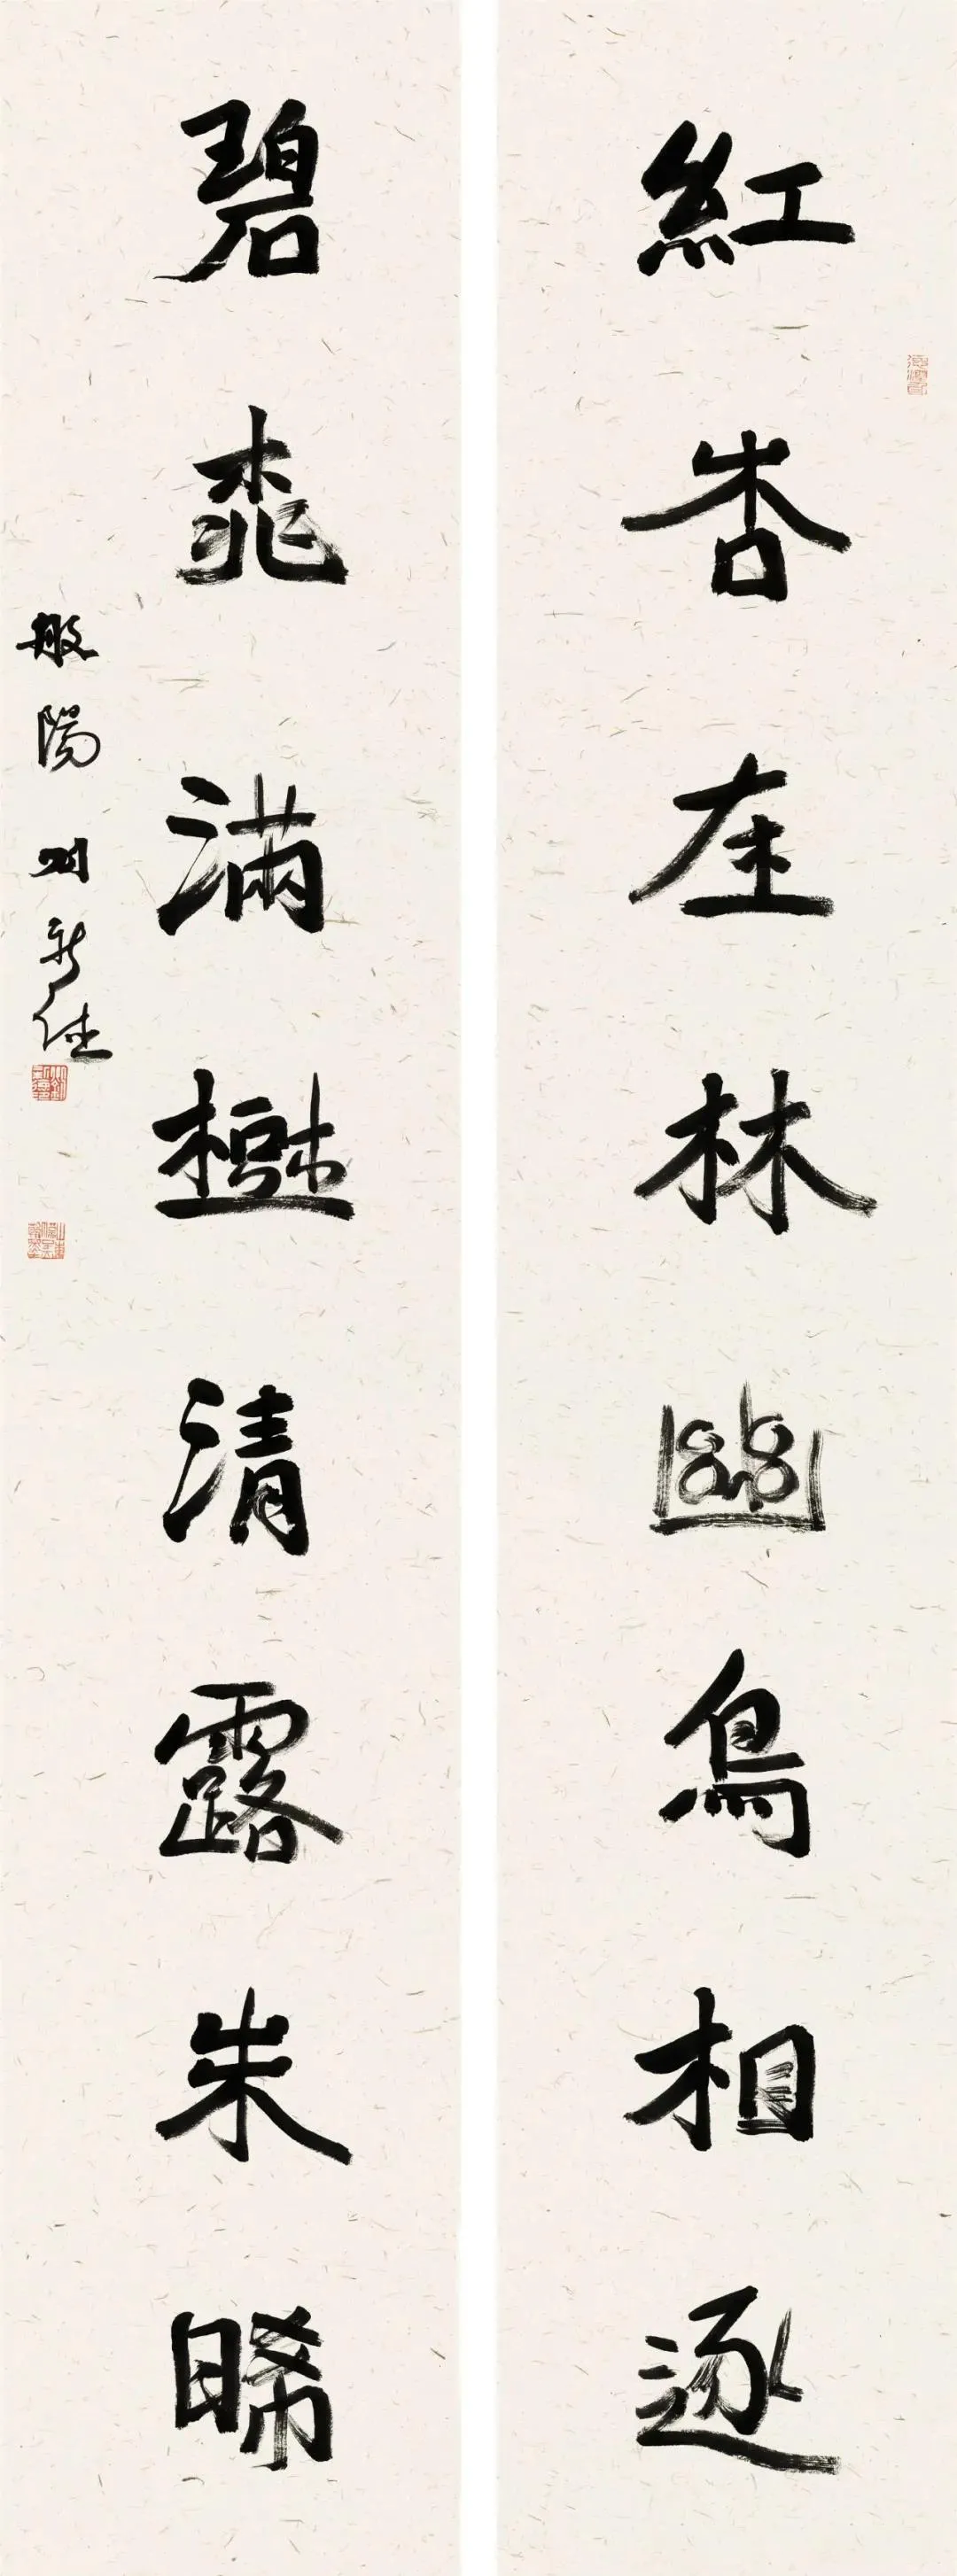 紅杏在林幽鳥相逐
碧桃滿樹清露未晞
般陽劉新德